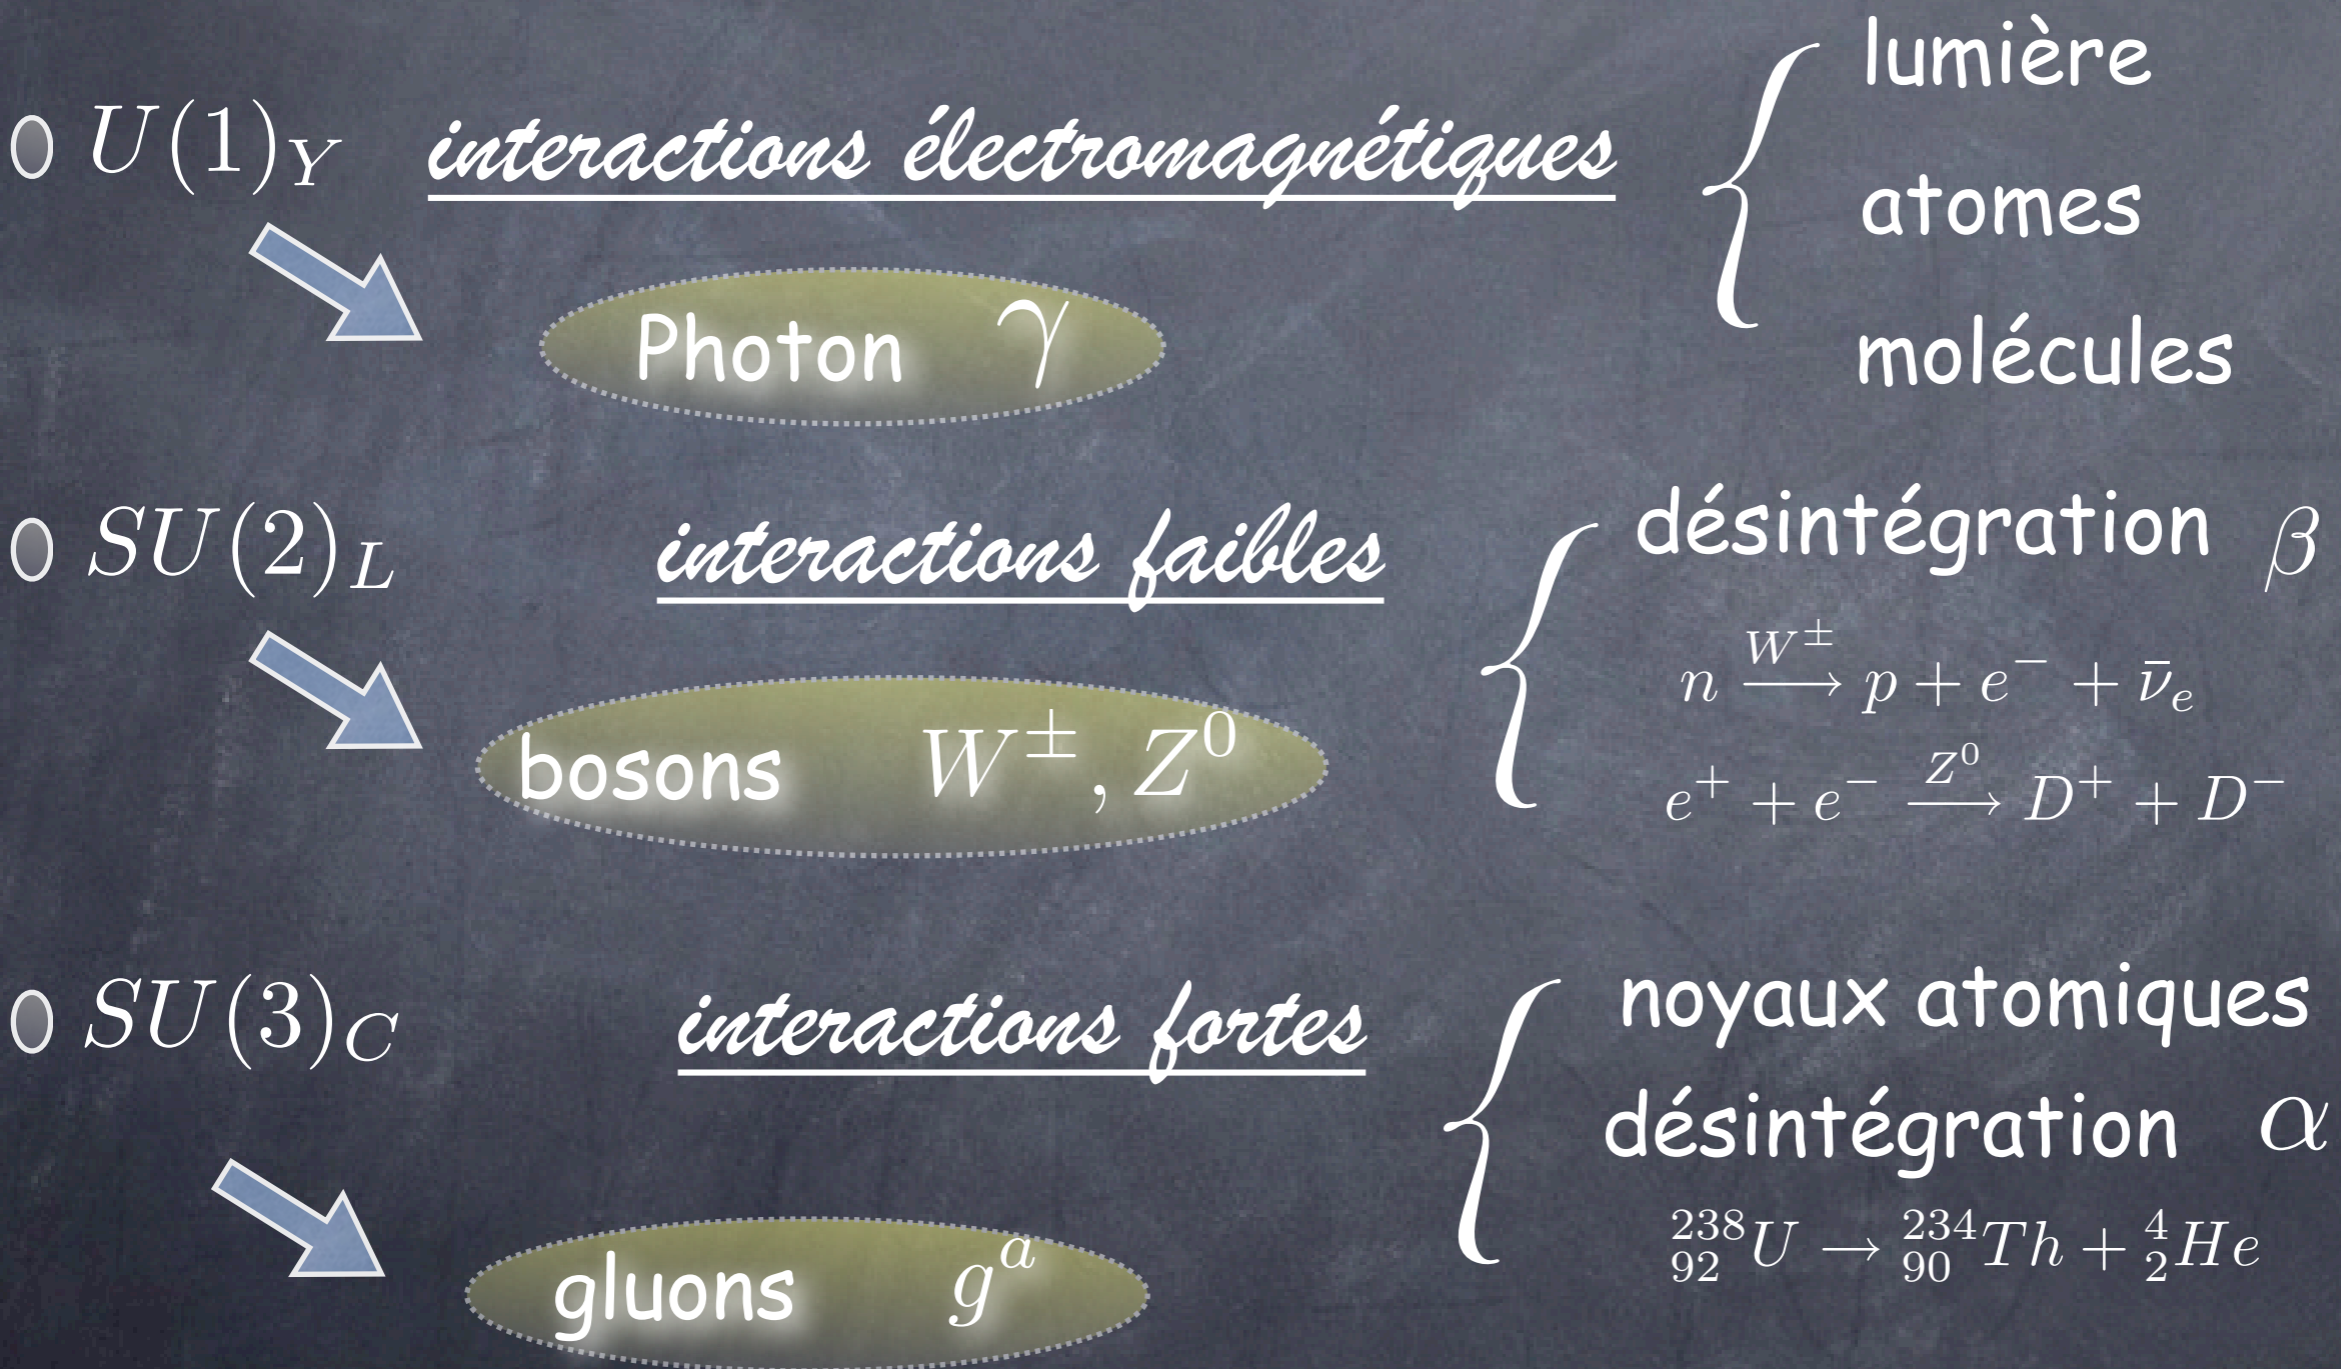 U(1)_Y interactions électromagnétiques
lumière
atomes
molécules
Photon γ
SU(2)_L interactions faibles
désintégration β
n \xrightarrow{W^±} p + e^- + \bar{ν}_e
e^+ + e^- \xrightarrow{Z^0} D^+ + D^-
bosons W^±, Z^0
SU(3)_C interactions fortes
noyaux atomiques
désintégration α
^{238}_{92}U → ^{234}_{90}Th + ^{4}_{2}He
gluons g^a